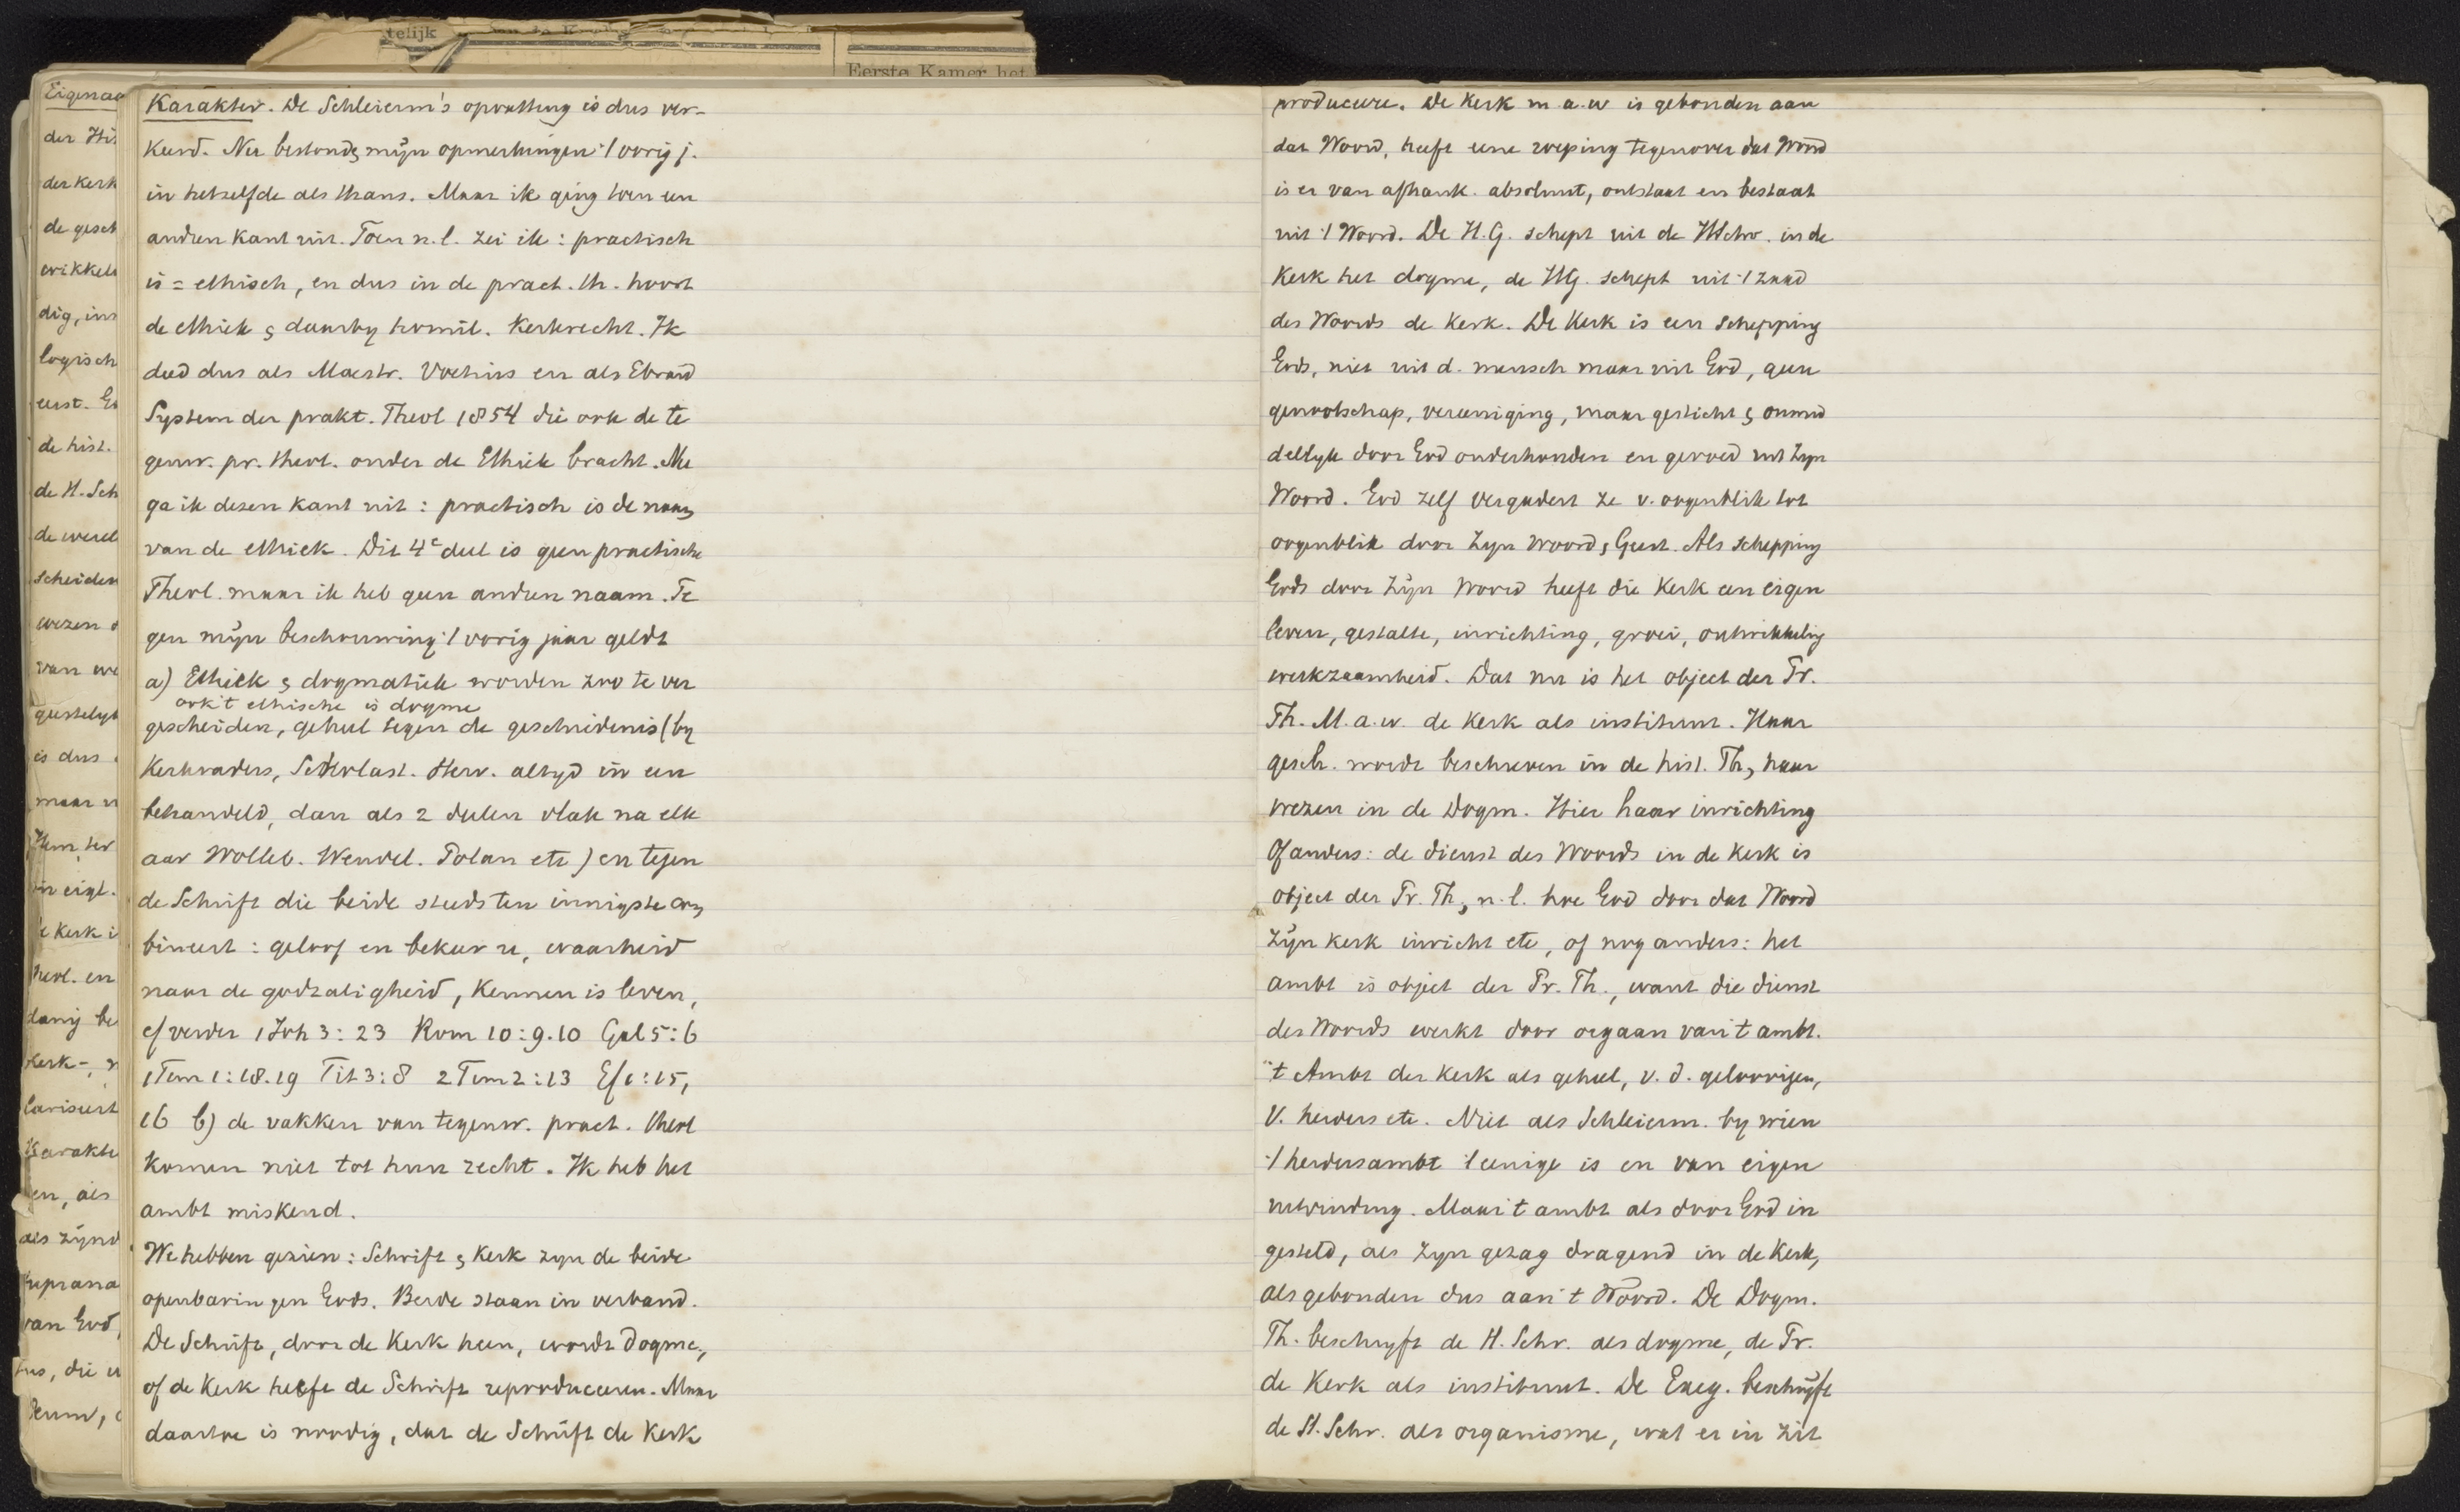 telijk
Eerste Kamer het
Eigenaa
der His
der Kerk
de gesch
wikkel
dig, ins
logisch
eerst. G
de hist.
de H. Sch
de werel
scheiden
wezen
van
geestelyk
is dus
maar
Kerk i
theol. en
danig be
Kerk-,
lariseert
Karakte
en, als
als zijnd
suprana
van God,
tus, die
Karakter. De Schleierm's opvatting is dus ver-
keerd. Nu bestonden mijn opmerkingen 't vorig j.
in hetzelfde als thans. Maar ik ging toen een
andren kant uit. Toen n.l. zei ik: practisch
is = ethisch, en dus in de pract. th. hoort
de ethiek & daarby homil. Kerkrecht. Ik
deed dus als Maestr. Voetius en als Ebrard
System der prakt. Theol 1854 die ook de te
genw. pr. theol. onder de Ethiek bracht. Nu
ga ik dezen kant uit: practisch is de naam
van de ethiek. Dit 4e deel is geen practische
Theol. maar ik heb geen andren naam. Te
gen mijn beschouwing 't vorig jaar geldt
a) Ethiek & dogmatiek worden zoo te ver
ook 't ethische is dogme
gescheiden, geheel tegen de geschiedenis (by
Kerkvaders, Scholast. Herv. altyd in een
behandeld, dan als 2 deelen vlak na elk
aar Wolleb. Wendel. Polan etc) en tegen
de Schrift die beide steeds ten innigste com
bineert: geloof en bekeer u, waarheid
naar de godzaligheid, Kennen is leven,
cf verder 1 Joh 3:23 Rom 10:9.10 Gal 5:6
1 Tim 1:18.19 Tit 3:8 2 Tim 2:13 Ef 1:15,
16 b) de vakken van tegenw. pract. theol
Komen niet tot hun recht. Ik heb het
ambt miskend.
We hebben gezien: Schrift & Kerk zyn de beide
openbaringen Gods. Beide staan in verband.
De Schrift, door de Kerk heen, wordt dogme,
of de Kerk heeft de Schrift reproduceeren. Maar
daartoe is noodig, dat de Schrift de Kerk
produceere. De Kerk m.a.w is gebonden aan
dat Woord, heeft eene roeping tegenover dat Woord
is er van afhank. absoluut, ontstaat en bestaat
uit 't Woord. De H.G. schept uit de HSchr. in de
Kerk het dogme, de HG. schept uit 't zaad
des Woords de Kerk. De Kerk is een Schepping
Gods, niet uit d. mensch maar uit God, geen
genootschap, vereeniging, maar gesticht & onmid
dellyk door God onderhouden en gevoed uit Zyn
Woord. God zelf vergadert ze v. oogenblik tot
oogenblik door Zyn Woord & Geest. Als schepping
Gods door Zijn Woord heeft die Kerk een eigen
leven, gestalte, inrichting, groei, ontwikkeling
werkzaamheid. Dat nu is het object der Pr.
Th. M.a.w. de Kerk als instituut. Haar
gesch. wordt beschreven in de hist. Th, haar
wezen in de Dogm. Hier haar inrichting
Of anders: de dienst des Woords in de Kerk is
object der Pr. Th, n.l. hoe God door dat Woord
Zijn Kerk inricht etc, of nog anders: het
ambt is object der Pr. Th., want die dienst
des Woords werkt door orgaan van 't ambt.
't Ambt der Kerk als geheel, v.d. geloovigen,
v. herders etc. Niet als Schleierm. by wien
't herdersambt 't eenige is en van eigen
uitvinding. Maar 't ambt als door God in
gesteld, als Zyn gezag dragend in de Kerk,
als gebonden dus aan 't Woord. De Dogm.
Th. beschryft de H. Schr. als dogme, de Pr.
de Kerk als instituut. De Exeg. beschrijft
de H. Schr. als organisme, wat er in zit